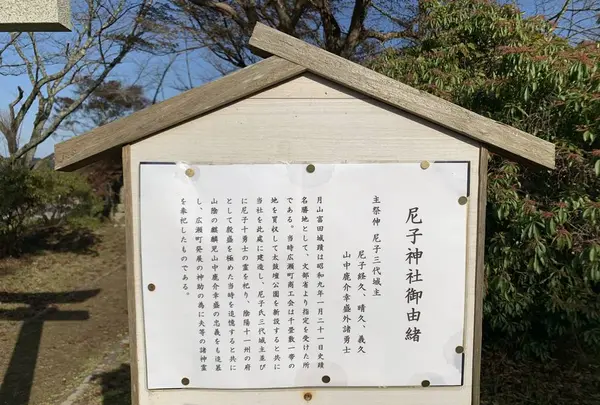 尼子神社御由緒
主祭神　尼子三代城主
尼子経久、晴久、義久
山中鹿介幸盛外諸勇士
月山富田城蹟は昭和九年一月二十一日史蹟
名勝地として、文部省より指定を受けた所
である。当時広瀬町商工会は千畳敷一帯の
地を買収して太鼓壇公園を新設すると共に
当社を此處に建造し、尼子氏三代城主並び
に尼子十勇士の霊を祀り、陰陽十一州の府
として殷盛を極めた当時を追憶すると共に
山陰の麒麟児山中鹿介幸盛の忠義をも追慕
し、広瀬町発展の神助の為に夫等の諸神霊
を奉祀したものである。